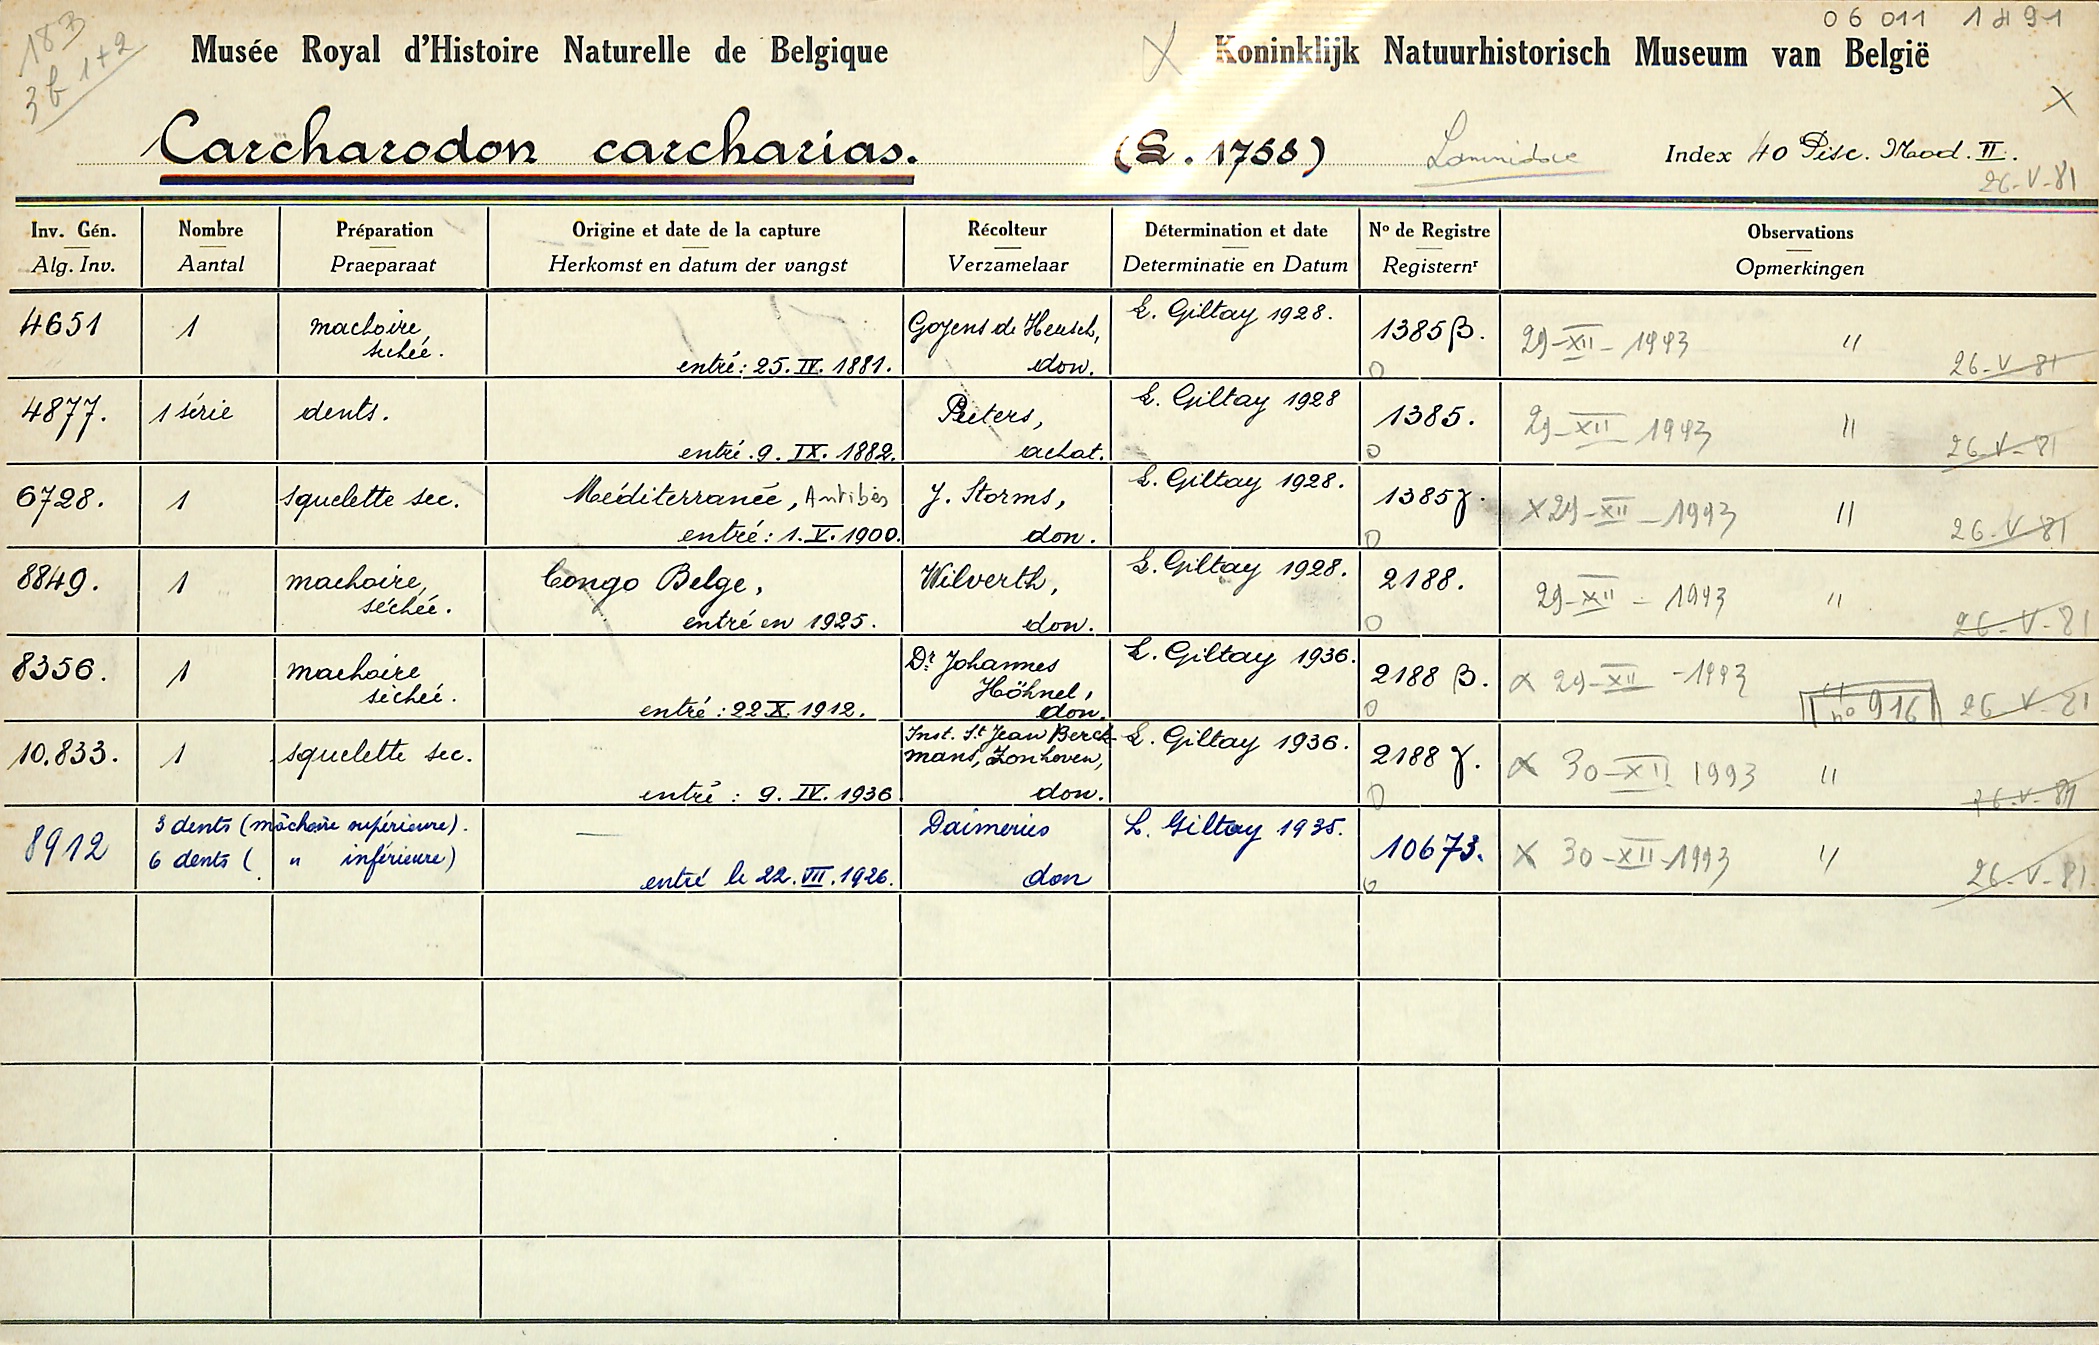 06 011 1491
183
3b 1+2
Musée Royal d'Histoire Naturelle de Belgique
Koninklijk Natuurhistorisch Museum van België
Carcharodon carcharias. (L. 1758) Lamnidae Index 40 Pisc. Mod. II.
26-V-81
Inv. Gén. Nombre Préparation Origine et date de la capture Récolteur Détermination et date No de Registre Observations
Alg. Inv. Aantal Praeparaat Herkomst en datum der vangst Verzamelaar Determinatie en Datum Registernr Opmerkingen
4651 1 machoire Goyens de Heusch, L. Giltay 1928. 1385β. 29-XII-1993 "
séchée. entré: 25.IV.1881. don. 26-V-81
4877. 1 série dents. Peeters, L. Giltay 1928 1385. 29-XII 1993 "
entré. 9. IX. 1882. achat. 26-V-81
6728. 1 squelette sec. Méditerranée, Antibes J. Storms, L. Giltay 1928. 1385γ. X 29-XII-1993 "
entré: 1.V.1900. don. 26-V-81
8849. 1 machoire, Congo Belge, Wilverth, L. Giltay 1928. 2188. 29-XII-1993 "
séchée. entré en 1925. don. 26-V-81
8356. 1 machoire Dr. Johannes L. Giltay 1936. 2188 β. X 29-XII-1993 "
séchée. Höhnel,
entré: 22 X. 1912. don. no 916 26-V-81
10.833. 1 squelette sec. Inst. St Jean Berck- L. Giltay 1936. 2188 γ. X 30-XII 1993 "
mans, Zonhoven,
entré : 9. IV. 1936 don. 26-V-81
8912 3 dents (mâchoire supérieure). — Daimeries L. Giltay 1935. 10673. X 30-XII-1993 "
6 dents ( " inférieure)
entré le 22.VII.1926. don 26-V-81